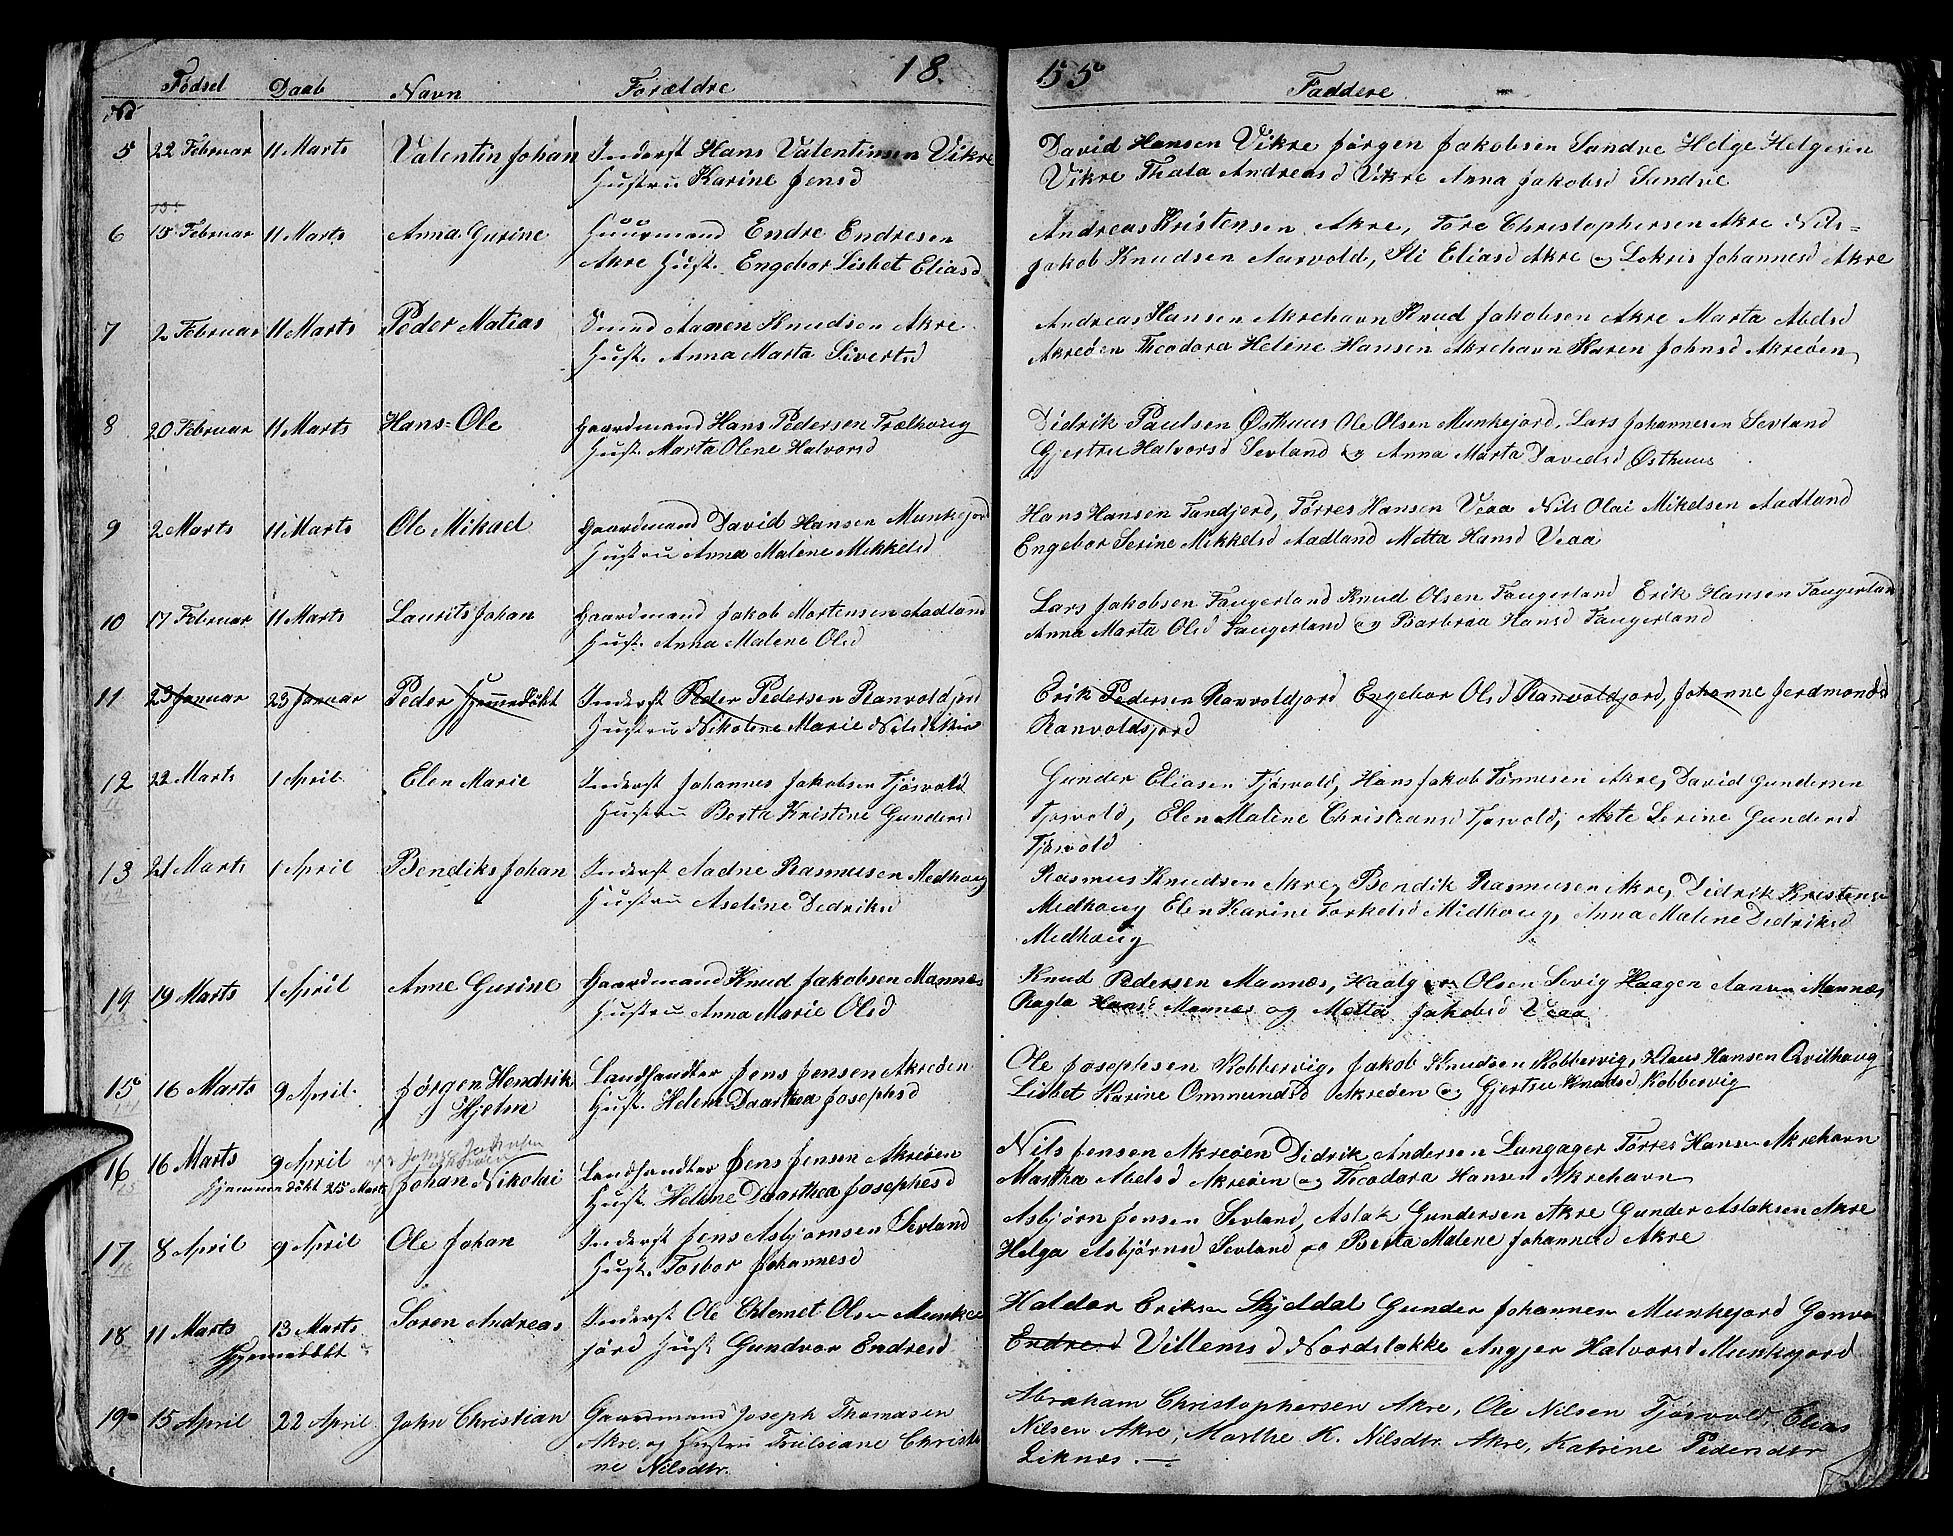 18.
Fødsel Daab Navn Forældre
No
5 22 Februar 11 Marts Valentin Johan Inderst Hans Valentinsen Vikre
Hustru Karine Jensd
6 15 Februar 11 Marts Anna Gurine Huusmand Endre Endresen
Akre Hust. Engebor Lisbet Eliasd
7 2 Februar 11 Marts Peder Matias Knudsen Akre
Hust. Anna Marta Sivertsd
8 20 Februar 11 Marts Hans-Ole Gaardmand Hans Pedersen Trælhoug
Hust. Marta Olene Halvorsd
9 2 Marts 11 Marts Ole Mikael Gaardmand David Hansen Munkejord
Hustru Anna Malene Mikkelsd
10 17 Februar 11 Marts Laurits Johan Gaardmand Jakob Mortensen Aadland
Hust. Anna Malene Olsd
11 23 Januar 23 Januar Peder Hjemmedøbt Inderst Peder Pedersen Ranvoldjord
Hustru Nikoline Marie Nilsd
12 22 Marts 1 April Elen Marie Inderst Johannes Jakobsen Tjøsvold
11
Hustru Berthe Kristine Gundersd
13 21 Marts 1 April Bendiks Johan Inderst Aadne Rasmusen Medhoug
12
Hustru Aseline Dedriksd
14 19 Marts 1 April Anne Gurine Gaardmand Knud Jakobsen Mannes
13
Hustru Anna Marie Olsd
15 16 Marts 9 April Jørgen Hendrik Landhandler Jens Jensen Akreøen
14
Hjelm Hust. Helene Daarthea Josephsd
16 16 Marts 9 April Johan Nikolai Landhandler Jens Jensen Akreøen
15
Hjemmedøbt 25 Marts Hust. Helene Daarthea Josephesd
17 8 April 9 April Ole Johan Inderst Jens Asbjørnsen Sevland
16
Hust. Tosbor Johannesd
18 11 Marts 13 Marts Søren Andreas Inderst Ole Edemet Olsen Munke
Hjemmedøbt jord Hust Gundvor Endresd
19 15 April 22 April John Christian Gaardmand Joseph Thomasen
Akre og Hustru Christi
ne Nilsdtr.
55
Faddere
David Hansen Vikre Jørgen Jakobsen Sandve Helge Helgesen
Vikre Thala Andreasd Vikre Anna Jakobsd Sandve
Andreas Kristensen Akre, Tore Christophersen Akre Nils-
Jakob Knudsen Aarvold, Eliasd Akre og Johannesd Akre
Andreas Hansen Akrehavn Knud Jakobsen Akre Marta Abelsd
Akreøen Theodora Heline Hansen Akrehavn Karen Johnsd Akreøen
Didrik Paulsen Østhuus Ole Olsen Munkejord, Lars Johannesen Sevland
Gjertru Halvorsd Sevland og Anna Marta Davidsd Østhuus
Hans Hansen Tandjord, Tørres Hansen Veaa Nils Olai Mikelsen Aadland
Engebor Serine Mikkelsd Aadland Metta Hansd Veaa
Lars Jakobsen Taugerland Knud Olsen Taugerland Erik Hansen Taugerland
Anna Marta Olsd Taugerland og Barbraa Hansd Taugerland
Erik Pedersen Ranvoldjord Engebor Olsd Ranvoldjord, Johanne Jerdmondsd
Ranvoldsjord
Gunder Eliasen Tjøsvold, Hans Jakob Tønnesen Akre, David Gundersen
Tjosvold, Elen Malene Christensd Tjosvold, Aste Serine Gundersd
Tjøsvold
Rasmus Knudsen Akre, Bendik Rasmusen Akre, Didrik Kristensen
Medhoug Elen Karine Torkelsd Midhoug, Anna Malene Didriksd
Medhoug
Knud Pedersen Mannes, Olsen Sevig Haagen Aansen Mannes
Ragla Haasd Mannes og Metta Jakobsd Veaa
Ole Josephsen Kobbervig, Jakob Knudsen Kobbervig, Klaus Hansen Qvilhoug
Lisbet Karine Ommundsd Akreøen og Gjertru Knudsd Kobbervig
Nils Jensen Akreøen Didrik Andersen Langager Tørres Hansen Akrehavn
Martha Abelsd Akreøen og Theodora Hansen Akrehavn
Asbjørn Jensen Sevland, Aslak Gundersen Akre Gunder Aslaksen Akre
Helga Asbjørnsd Sevland og Berta Malene Johannesd Akre
Haldor Eriksen Skjeldal Gunder Johannesen Munkejord Gonvor
Endresd Villemsd Nordstokke Angjer Halvorsd Munkejord
Abraham Christophersen Akre, Ole Nilsen Tjøsvold, Elias
Nilsen Akre, Marthe K. Nilsdtr. Akre, Katrine Pedersdtr
Liknes.